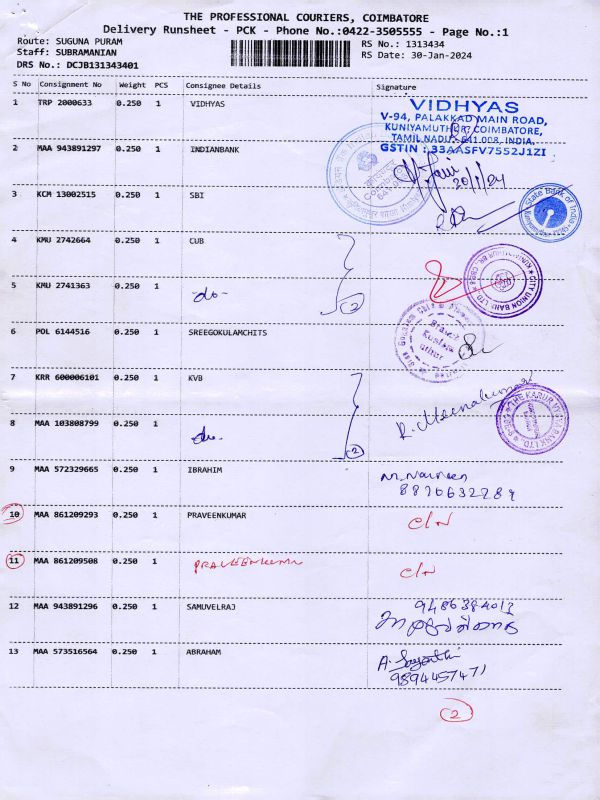 THE PROFESSIONAL COURIERS, COIMBATORE
Delivery Runsheet - PCK - Phone No.:0422-3505555 - Page No.:1
Route: SUGUNA PURAM
RS No.: 1313434
Staff: SUBRAMANIAN
RS Date: 30-Jan-2024
DRS No.: DCJB131343401
S No Consignment No Weight PCS Consignee Details Signature
1 TRP 2000633 0.250 1 VIDHYAS
VIDHYAS
V-94, PALAKKAD MAIN ROAD,
KUNIYAMUTHUR, COIMBATORE,
TAMIL NADU, 641 008, INDIA.
GSTIN : 33AASFV7552J1ZI
2 MAA 943891297 0.250 1 INDIANBANK
3 KCM 13002515 0.250 1 SBI
State Bank of India
4 KMU 2742664 0.250 1 CUB
CITY UNION BANK LTD.
5 KMU 2741363 0.250 1 -do- 2
6 POL 6144516 0.250 1 SREEGOKULAMCHITS
7 KRR 600006101 0.250 1 KVB
R. Meenakumari
THE KARUR VYSYA BANK LTD.
8 MAA 103808799 0.250 1 do. 2
9 MAA 572329665 0.250 1 IBRAHIM
10 MAA 861209293 0.250 1 PRAVEENKUMAR C/N
11 MAA 861209508 0.250 1 PRAVEENKUMAR C/N
12 MAA 943891296 0.250 1 SAMUVELRAJ
13 MAA 573516564 0.250 1 ABRAHAM
9894457471
2